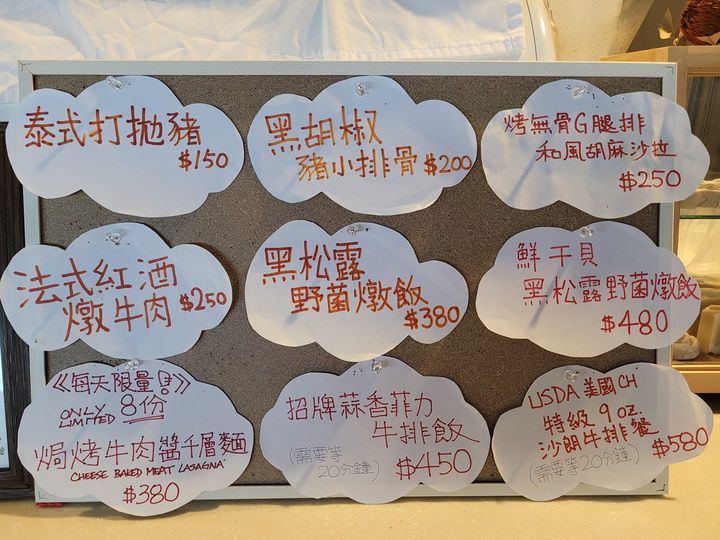 泰式打拋豬
$150
黑胡椒
豬小排骨 $200
烤無骨G腿排
和風胡麻沙拉
$250
法式紅酒
燉牛肉 $250
黑松露
野菌燉飯
$380
鮮干貝
黑松露野菌燉飯
$480
《每天限量!》
ONLY LIMITED 8份
焗烤牛肉醬千層麵
CHEESE BAKED MEAT LASAGNA
$380
招牌蒜香菲力
牛排飯
(需要等20分鐘)
$450
USDA 美國CH
特級 9 oz.
沙朗牛排餐
(需要等20分鐘)
$580